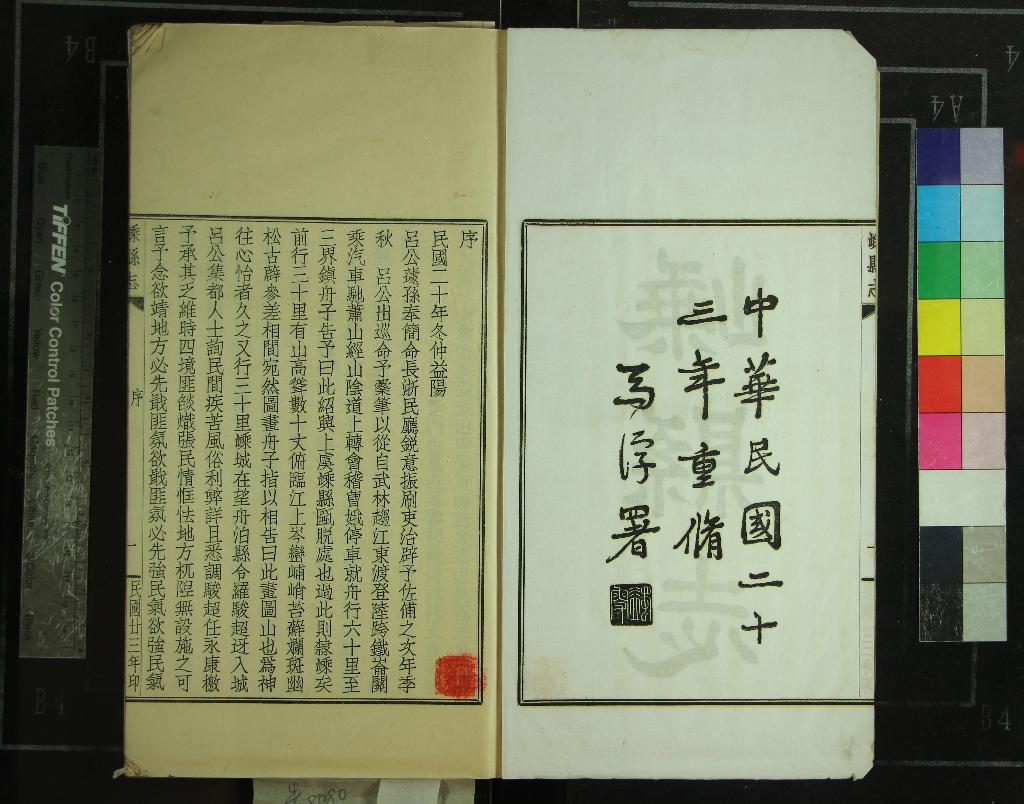 中華民國二十
三年重脩
馬浮署
嵊縣志
序
民國二十年冬仲益陽
呂公蘧孫奉簡命長浙民廳銳意振刷吏治辟予佐俌之次年季
秋　呂公出巡命予橐筆以從自武林趨江東渡登陸跨鐵崙關
乘汽車馳蕭山經山陰道上轉會稽曹娥停車就舟行六十里至
三界鎮舟子告予曰此紹興上虞嵊縣甌脫處也過此則隸嵊矣
前行三十里有山高聳數十丈俯臨江上岑巒峬峭苔蘚斕斑幽
松古辟參差相間宛然圖畫舟子指以相告曰此畫圖山也爲神
往心怡者久之又行三十里嵊城在望舟泊縣令羅駿超迓入城
呂公集都人士詢民間疾苦風俗利弊詳且悉調駿超任永康檄
予承其乏維時四境匪燄熾張民情恇怯地方杌隉無設施之可
言予念欲靖地方必先戢匪氛欲戢匪氛必先強民氣欲強民氣
嵊縣志
序
一
民國廿三年印
TIFFEN Color Control Patches
Blue
Cyan
Green
Yellow
Red
Magenta
B4
B4
A4
B4